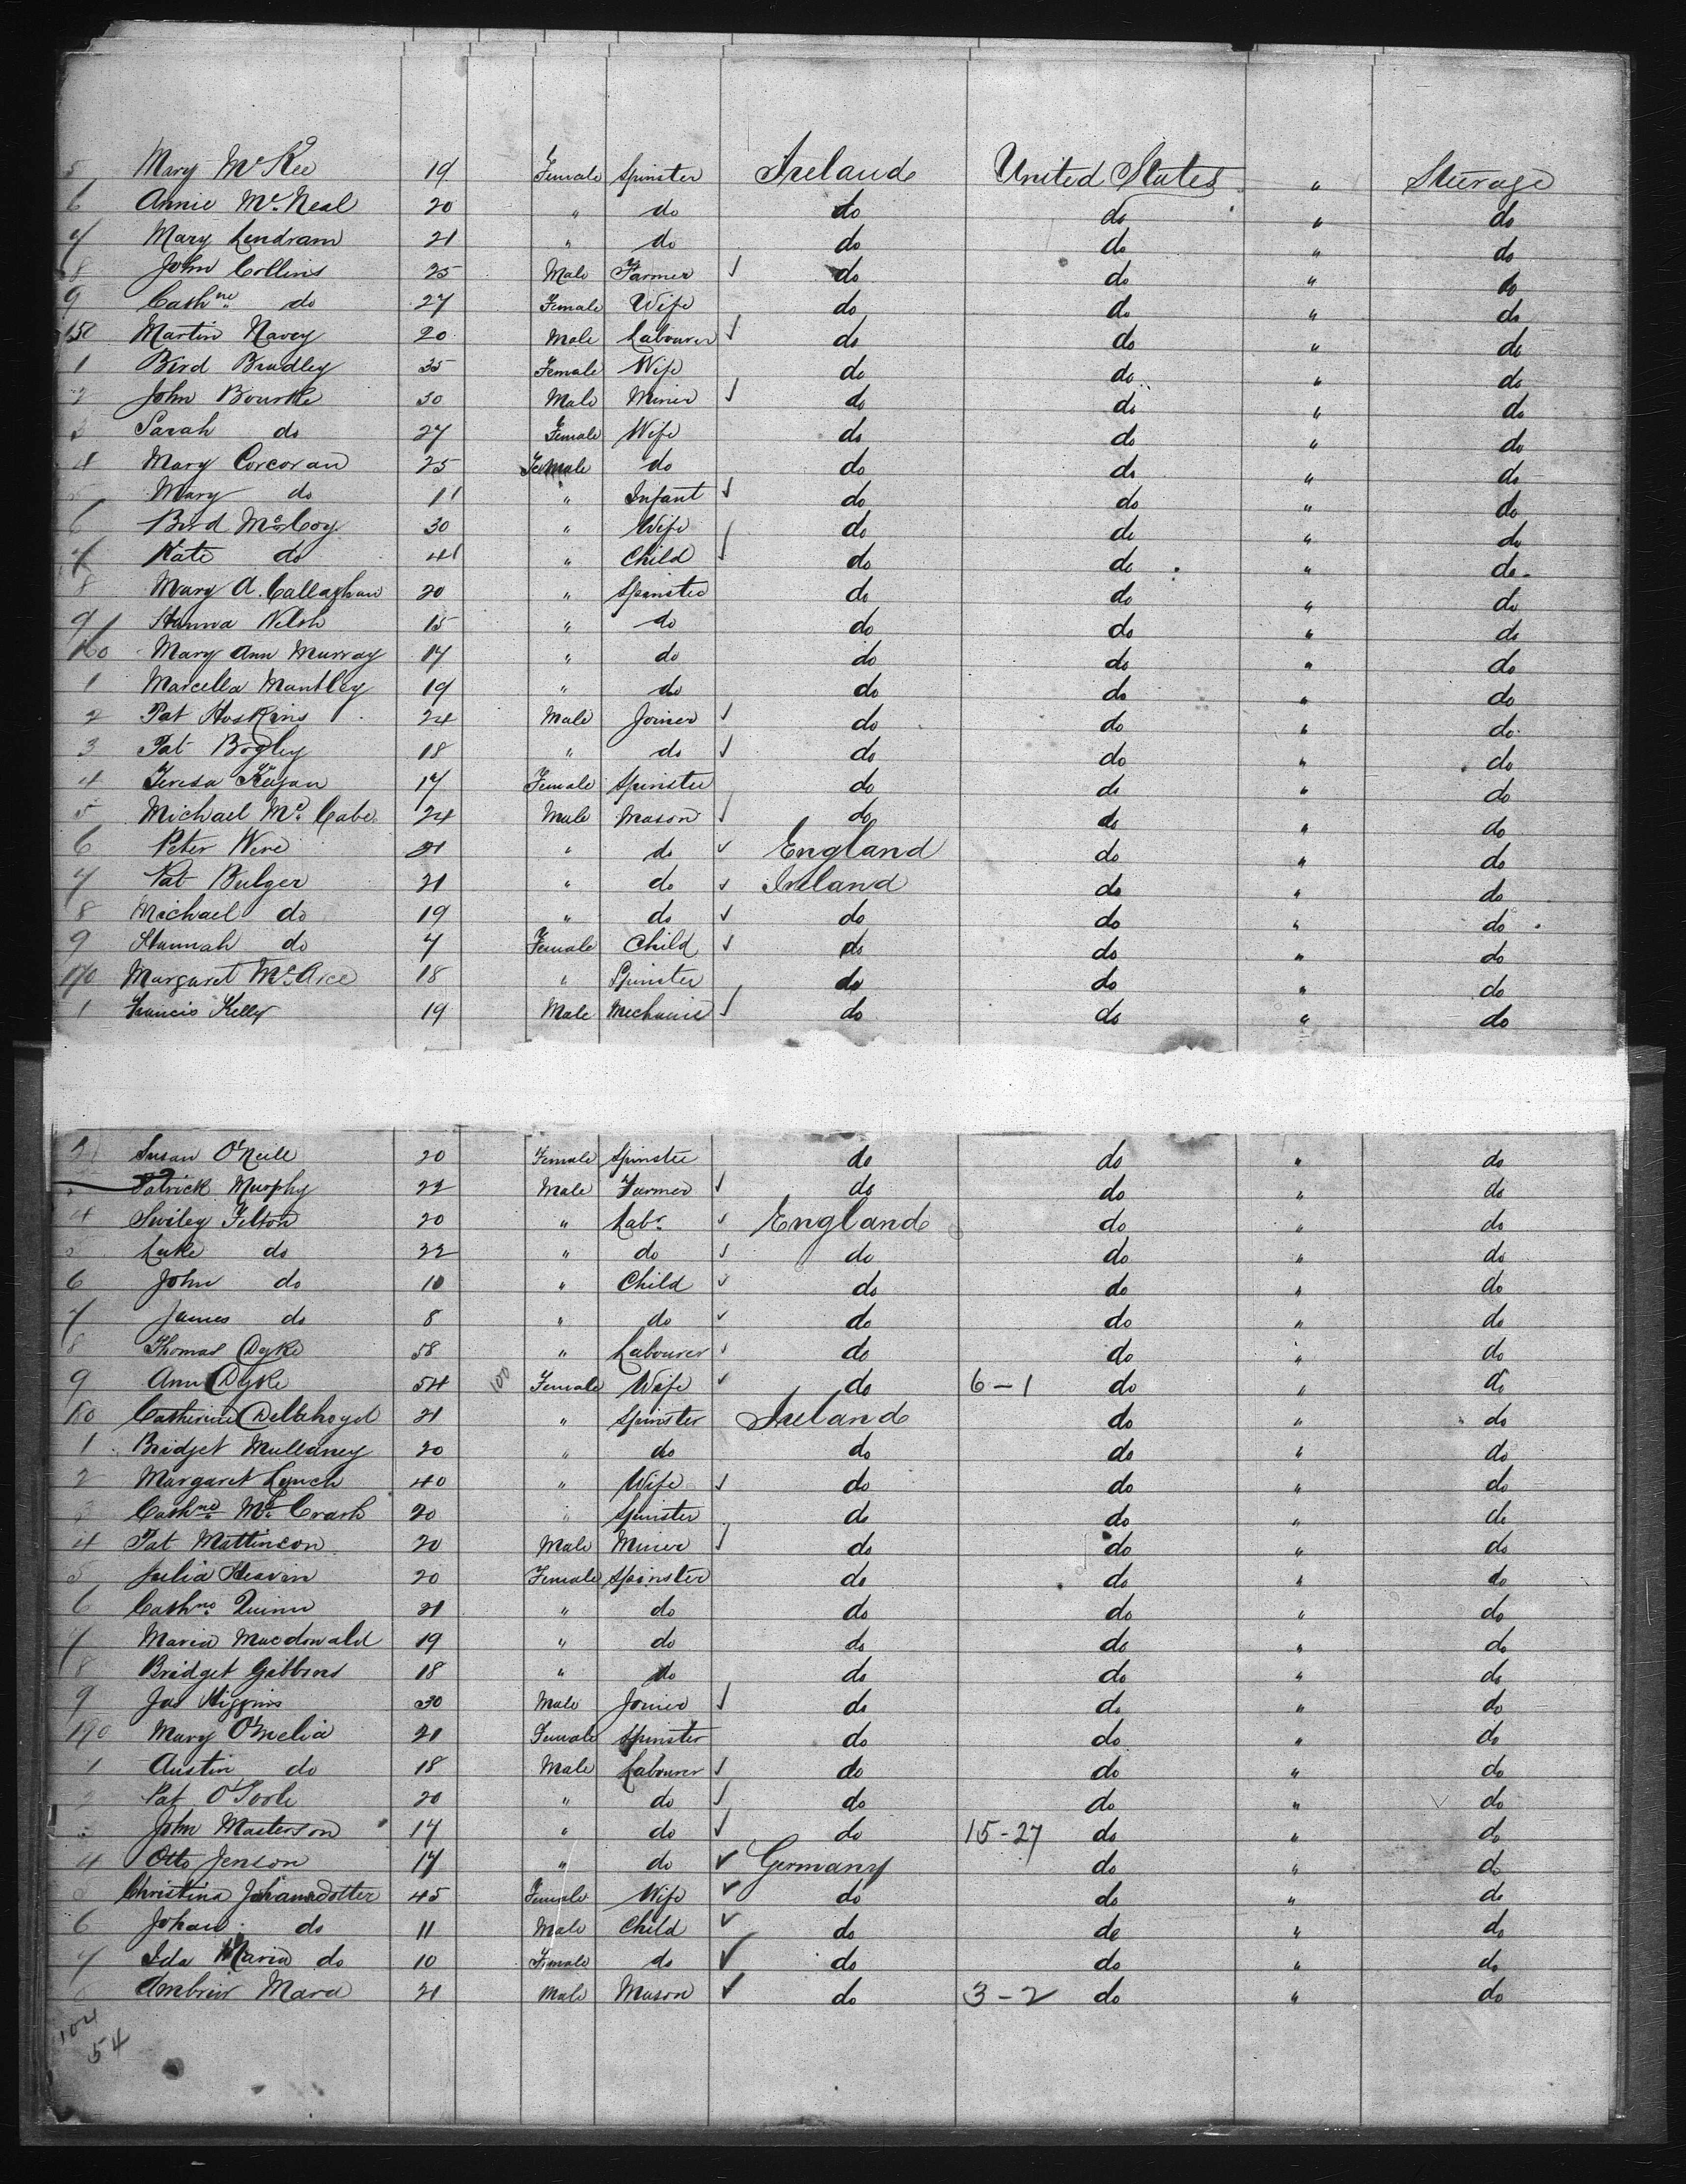 5 Mary McKee 19 Female Spinster Ireland United States " Steerage
6 Annie McNeal 20 " do do do " do
7 Mary Lendram 21 " do do do " do
8 John Collins 25 Male Farmer ✓ do do " do
9 Cathne do 27 Female Wife do do " do
150 Martin Navey 20 Male Labourer ✓ do do " do
1 Bird Bradley 35 Female Wife do do " do
2 John Bourke 30 Male Miner ✓ do do " do
3 Sarah do 27 Female Wife do do " do
4 Mary Corcoran 25 Female do do do " do
5 Mary do 11 " Infant ✓ do do " do
6 Bird McCoy 30 " Wife do do " do
7 Kate do 4 " Child ✓ do do " do
8 Mary A. Callaghan 20 " Spinster do do " do
9 Hanna Welsh 15 " do do do " do
160 Mary Ann Murray 17 " do do do " do
1 Marcella Mantley 19 " do do do " do
2 Pat Hoskins 24 Male Joiner ✓ do do " do
3 Pat Bogley 18 " do ✓ do do " do
4 Teresa Keegan 17 Female Spinster do do " do
5 Michael McCabe 24 Male Mason ✓ do do " do
6 Peter Were 21 " do ✓ England do " do
7 Pat Bulger 21 " do ✓ Ireland do " do
8 Michael do 19 " do ✓ do do " do
9 Hannah do 7 Female Child ✓ do do " do
170 Margaret McArce 18 " Spinster do do " do
1 Francis Kelly 19 Male Mechanic ✓ do do " do
2 Susan O'Neill 20 Female Spinster do do " do
Patrick Murphy 22 Male Farmer ✓ do do " do
4 Swiley Felton 20 " Labr ✓ England do " do
5 Luke do 22 " do ✓ do do " do
6 John do 10 " Child ✓ do do " do
7 James do 8 " do ✓ do do " do
8 Thomas Dyke 58 " Labourer ✓ do do " do
9 Ann Dyke 54 100 Female Wife ✓ do 6-1 do " do
180 Catherine Dellehoyd 21 " Spinster Ireland do " do
1 Bridget Mullaney 20 " do do do " do
2 Margaret Lynch 40 " Wife ✓ do do " do
3 Cathne McCrash 20 " Spinster do do " do
4 Pat Mattinson 20 Male Miner ✓ do do " do
5 Julia Heavin 20 Female Spinster do do " do
6 Cathne Quinn 21 " do do do " do
7 Maria Macdonald 19 " do do do " do
8 Bridget Gibbons 18 " do do do " do
9 Jas Higgins 30 Male Joiner ✓ do do " do
190 Mary O'Melia 21 Female Spinster do do " do
1 Austin do 18 Male Labourer ✓ do do " do
2 Pat O'Toole 20 " do ✓ do do " do
John Masterson 17 " do ✓ do 15-27 do " do
4 Otto Jenson 17 " do ✓ Germany do " do
5 Christina Johansdotter 45 Female Wife ✓ do do " do
6 Johan do 11 Male Child ✓ do do " do
7 Ida Maria do 10 Female do ✓ do do " do
Mard 21 Male Mason ✓ do 3-2 do " do
104
54